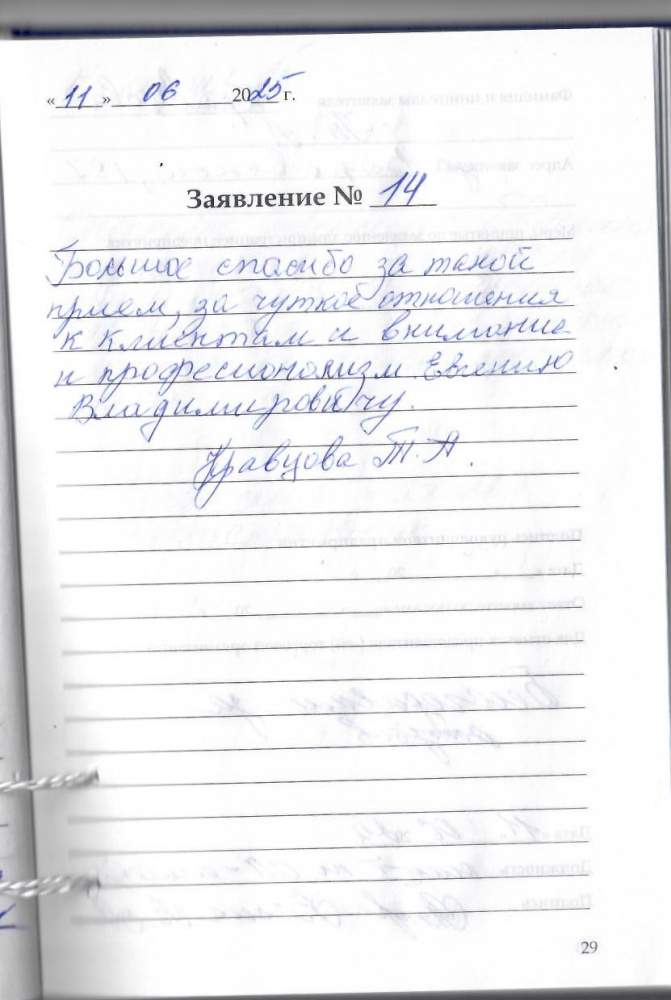 «11» 06 2025 г.
Заявление № 14
Большое спасибо за такой
прием, за чуткое отношения
к клиентам и внимание
и професионализм Евгению
Владимировичу.
Кравцова Т.А.
29